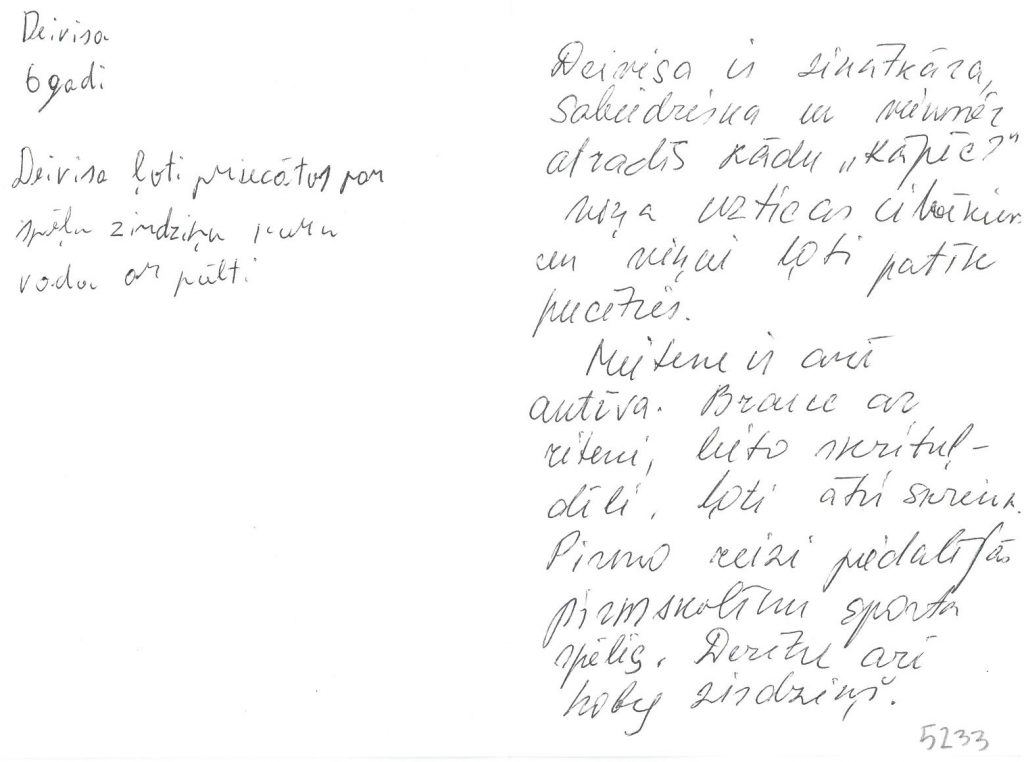 Deivisa
6 gadi
Deivisa ļoti priecātos par
spēļu zirdziņu kuru
vada ar pulti
Deivisa ir zinātkāra,
sabiedriska un vienmēr
atradīs kādu „kāpēc?"
viņa uzticas cilvēkiem
un viņai ļoti patīk
pucēties.
Meitene ir arī
aktīva. Brauc ar
riteni, lieto skrituļ-
dēli, ļoti ātri skrien.
Pirmo reizi piedalījās
pirmskolēnu sporta
spēlēs. Derētu arī
hobij zirdziņš.
5233